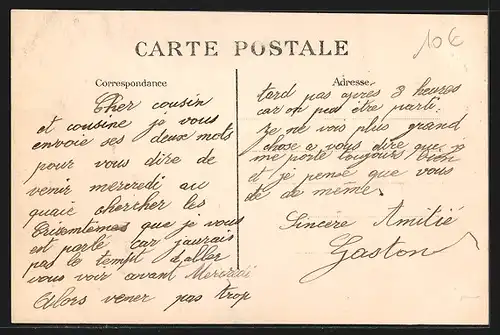 10€
CARTE POSTALE
Correspondance
Cher cousin
et cousine je vous
envoie ses deux mots
pour vous dire de
venir mercredi au
quaie chercher les
que je vous
est parlé car jaurais
pas le temps daller
vous voir avant Mercredi
Alors vener pas trop
Adresse
tard pas après 3 heures
car on peu être parti.
Je ne vois plus grand
chose a vous dire que je
me porte toujours bien
et je pense que vous
de même.
Sincère Amitié
Gaston